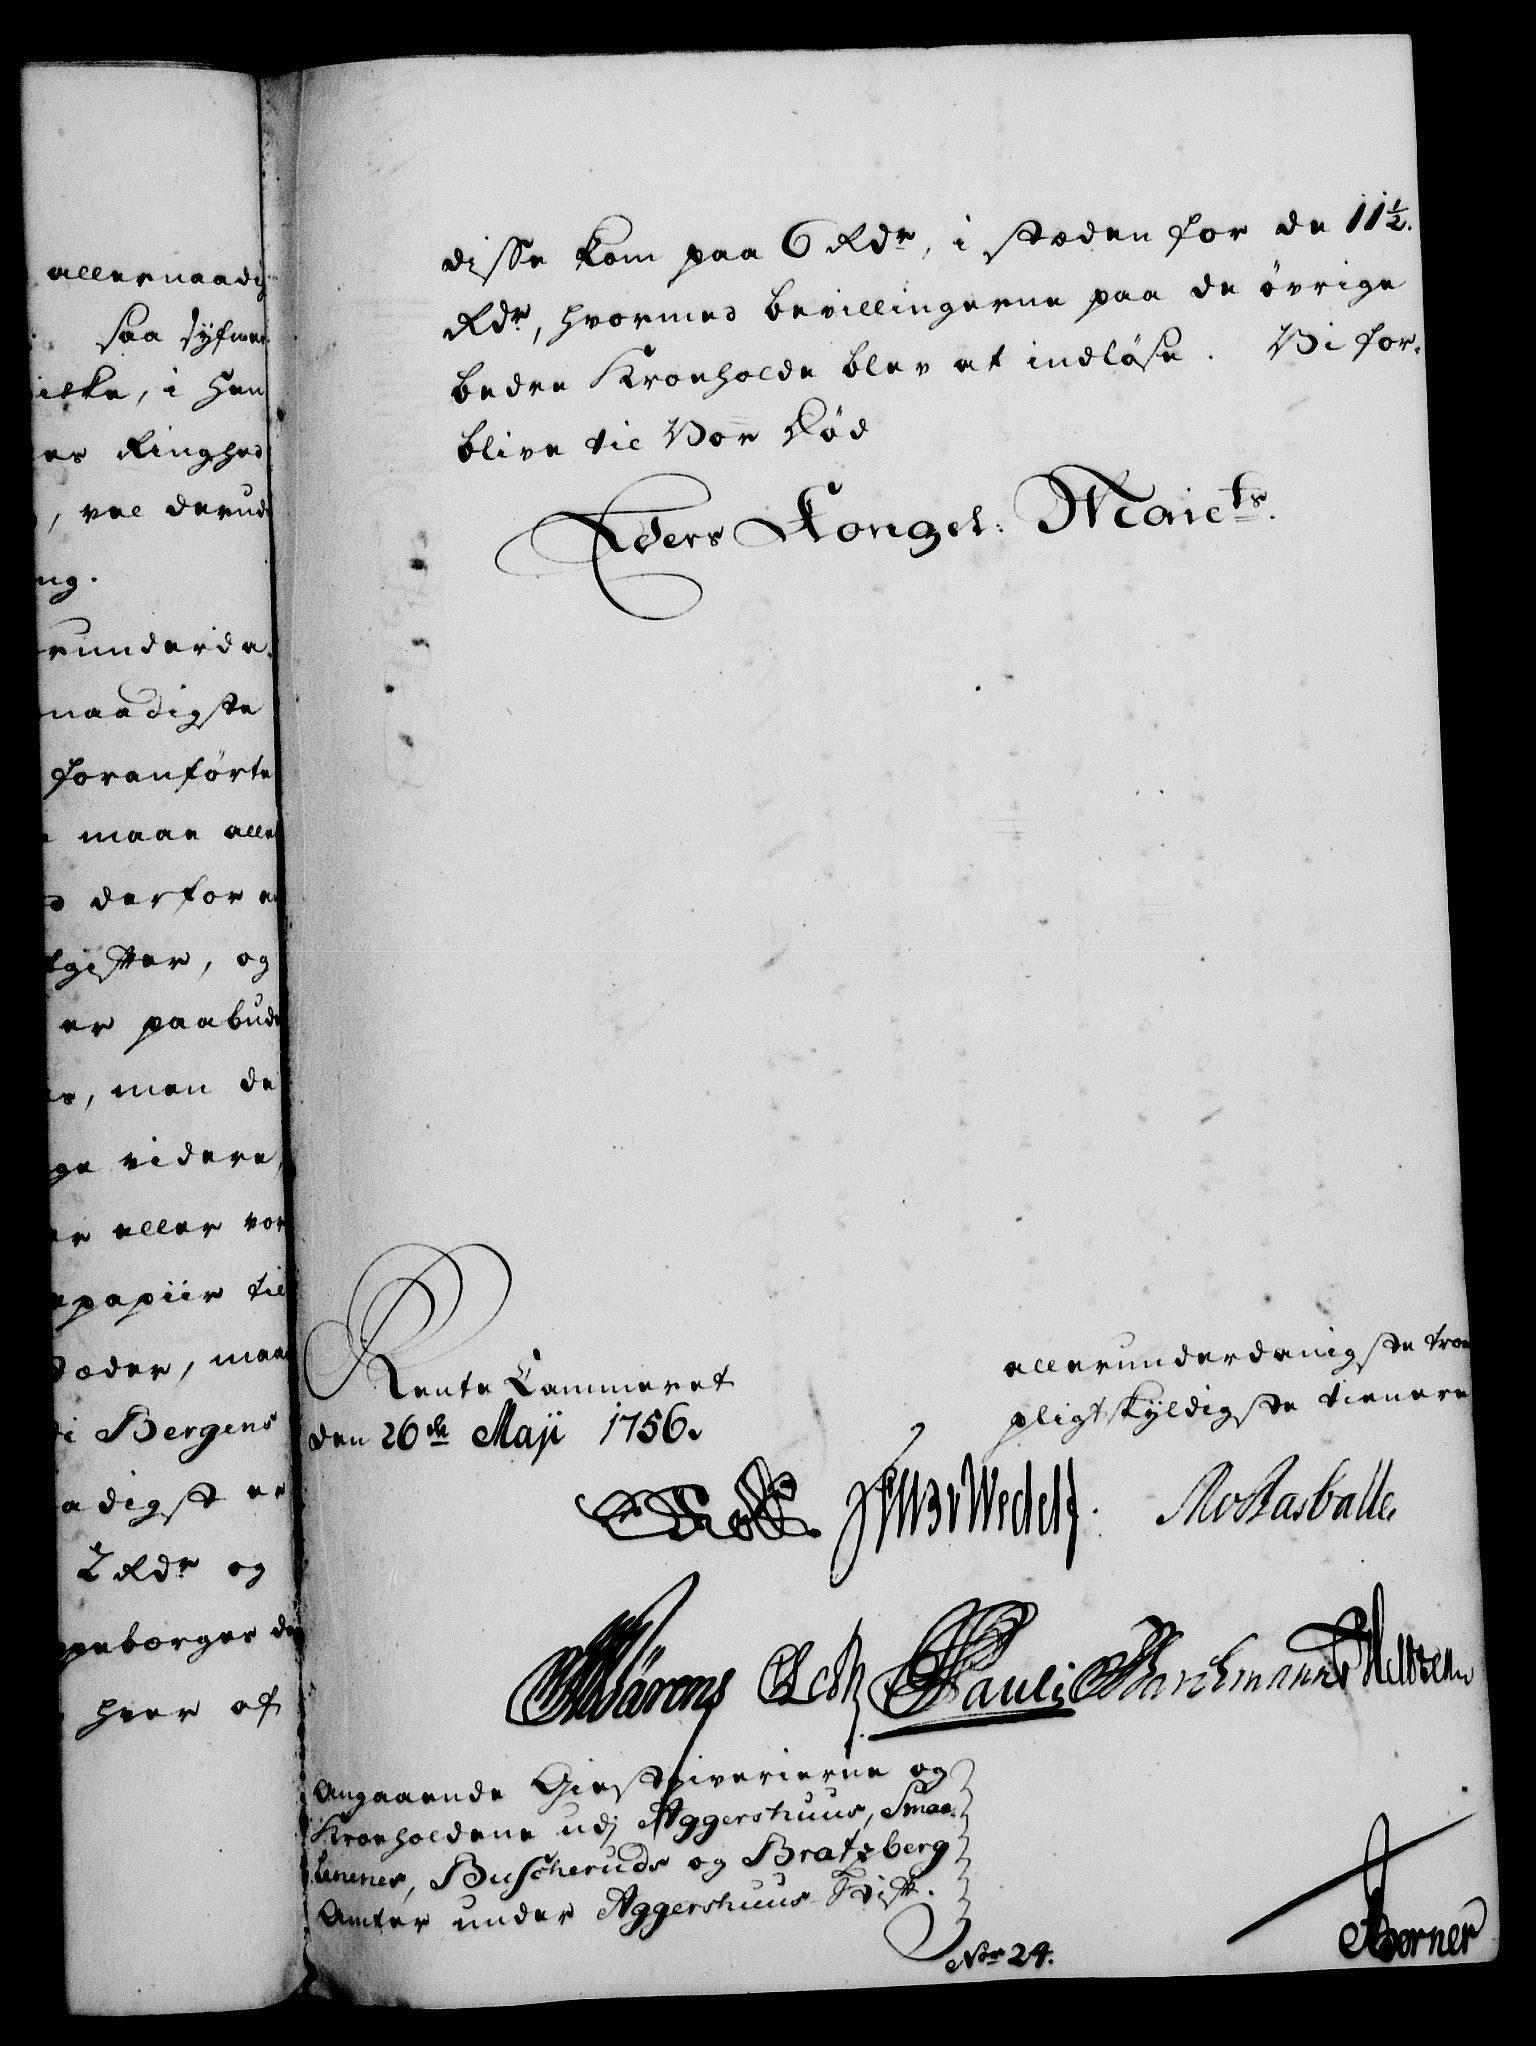 allernaadig
saa
ilke, i Hen
es Ringhed
, vel derud
ng.
erunderda-
naadigste
foranførte
maae aller
derfor
gifter, og
er paabud
men de
ge videre,
er eller vor
papiir til
stæder, maa
di Bergens
adigst er
2 Rdr og
peborges de
hver af
disse kom paa 6 Rdr, i stæden for de 11½.
Rdr, hvormed bevillingerne paa de övrige
bedre Kroeholde blev at indlöse. Vi for-
blive til Vor Död
Eders Kongel: Maiets.
Rente Cammeret
den 26de Maji 1756.
allerunderdanigste troe
pligtskyldigste tienere
Wedell
Rasballe
Pauli
Angaaende Giestgiverierne og
Kroeholdene udj Aggershuus, Smaa-
lenenes, Buscheruds og Bratsberg
Amter under Aggershuus Stift.
Nor 24.
Börner